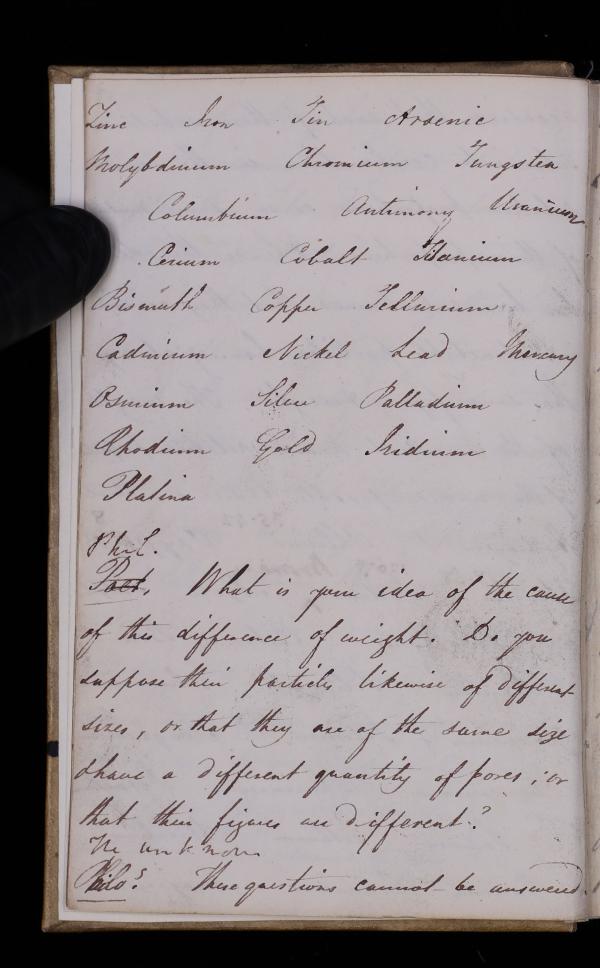 Zinc Iron Tin Arsenic
Molybdinum Chromium Tungsten
Columbium Antimony Uranium
Cerium Cobalt Titanium
Bismuth Copper Tellurium
Cadmium Nickel Lead Mercury
Osmium Silver Palladium
Rhodium Gold Iridium
Platina
Phil.
Poet. What is your idea of the cause
of this difference of weight. Do you
suppose their particles likewise of different
sizes, or that they are of the same size
& have a different quantity of pores; or
that their figures are different?
The unknown
Philo. These questions cannot be answered.